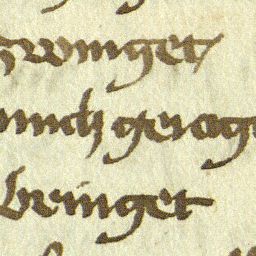 zwinget
mich gerag
bringet